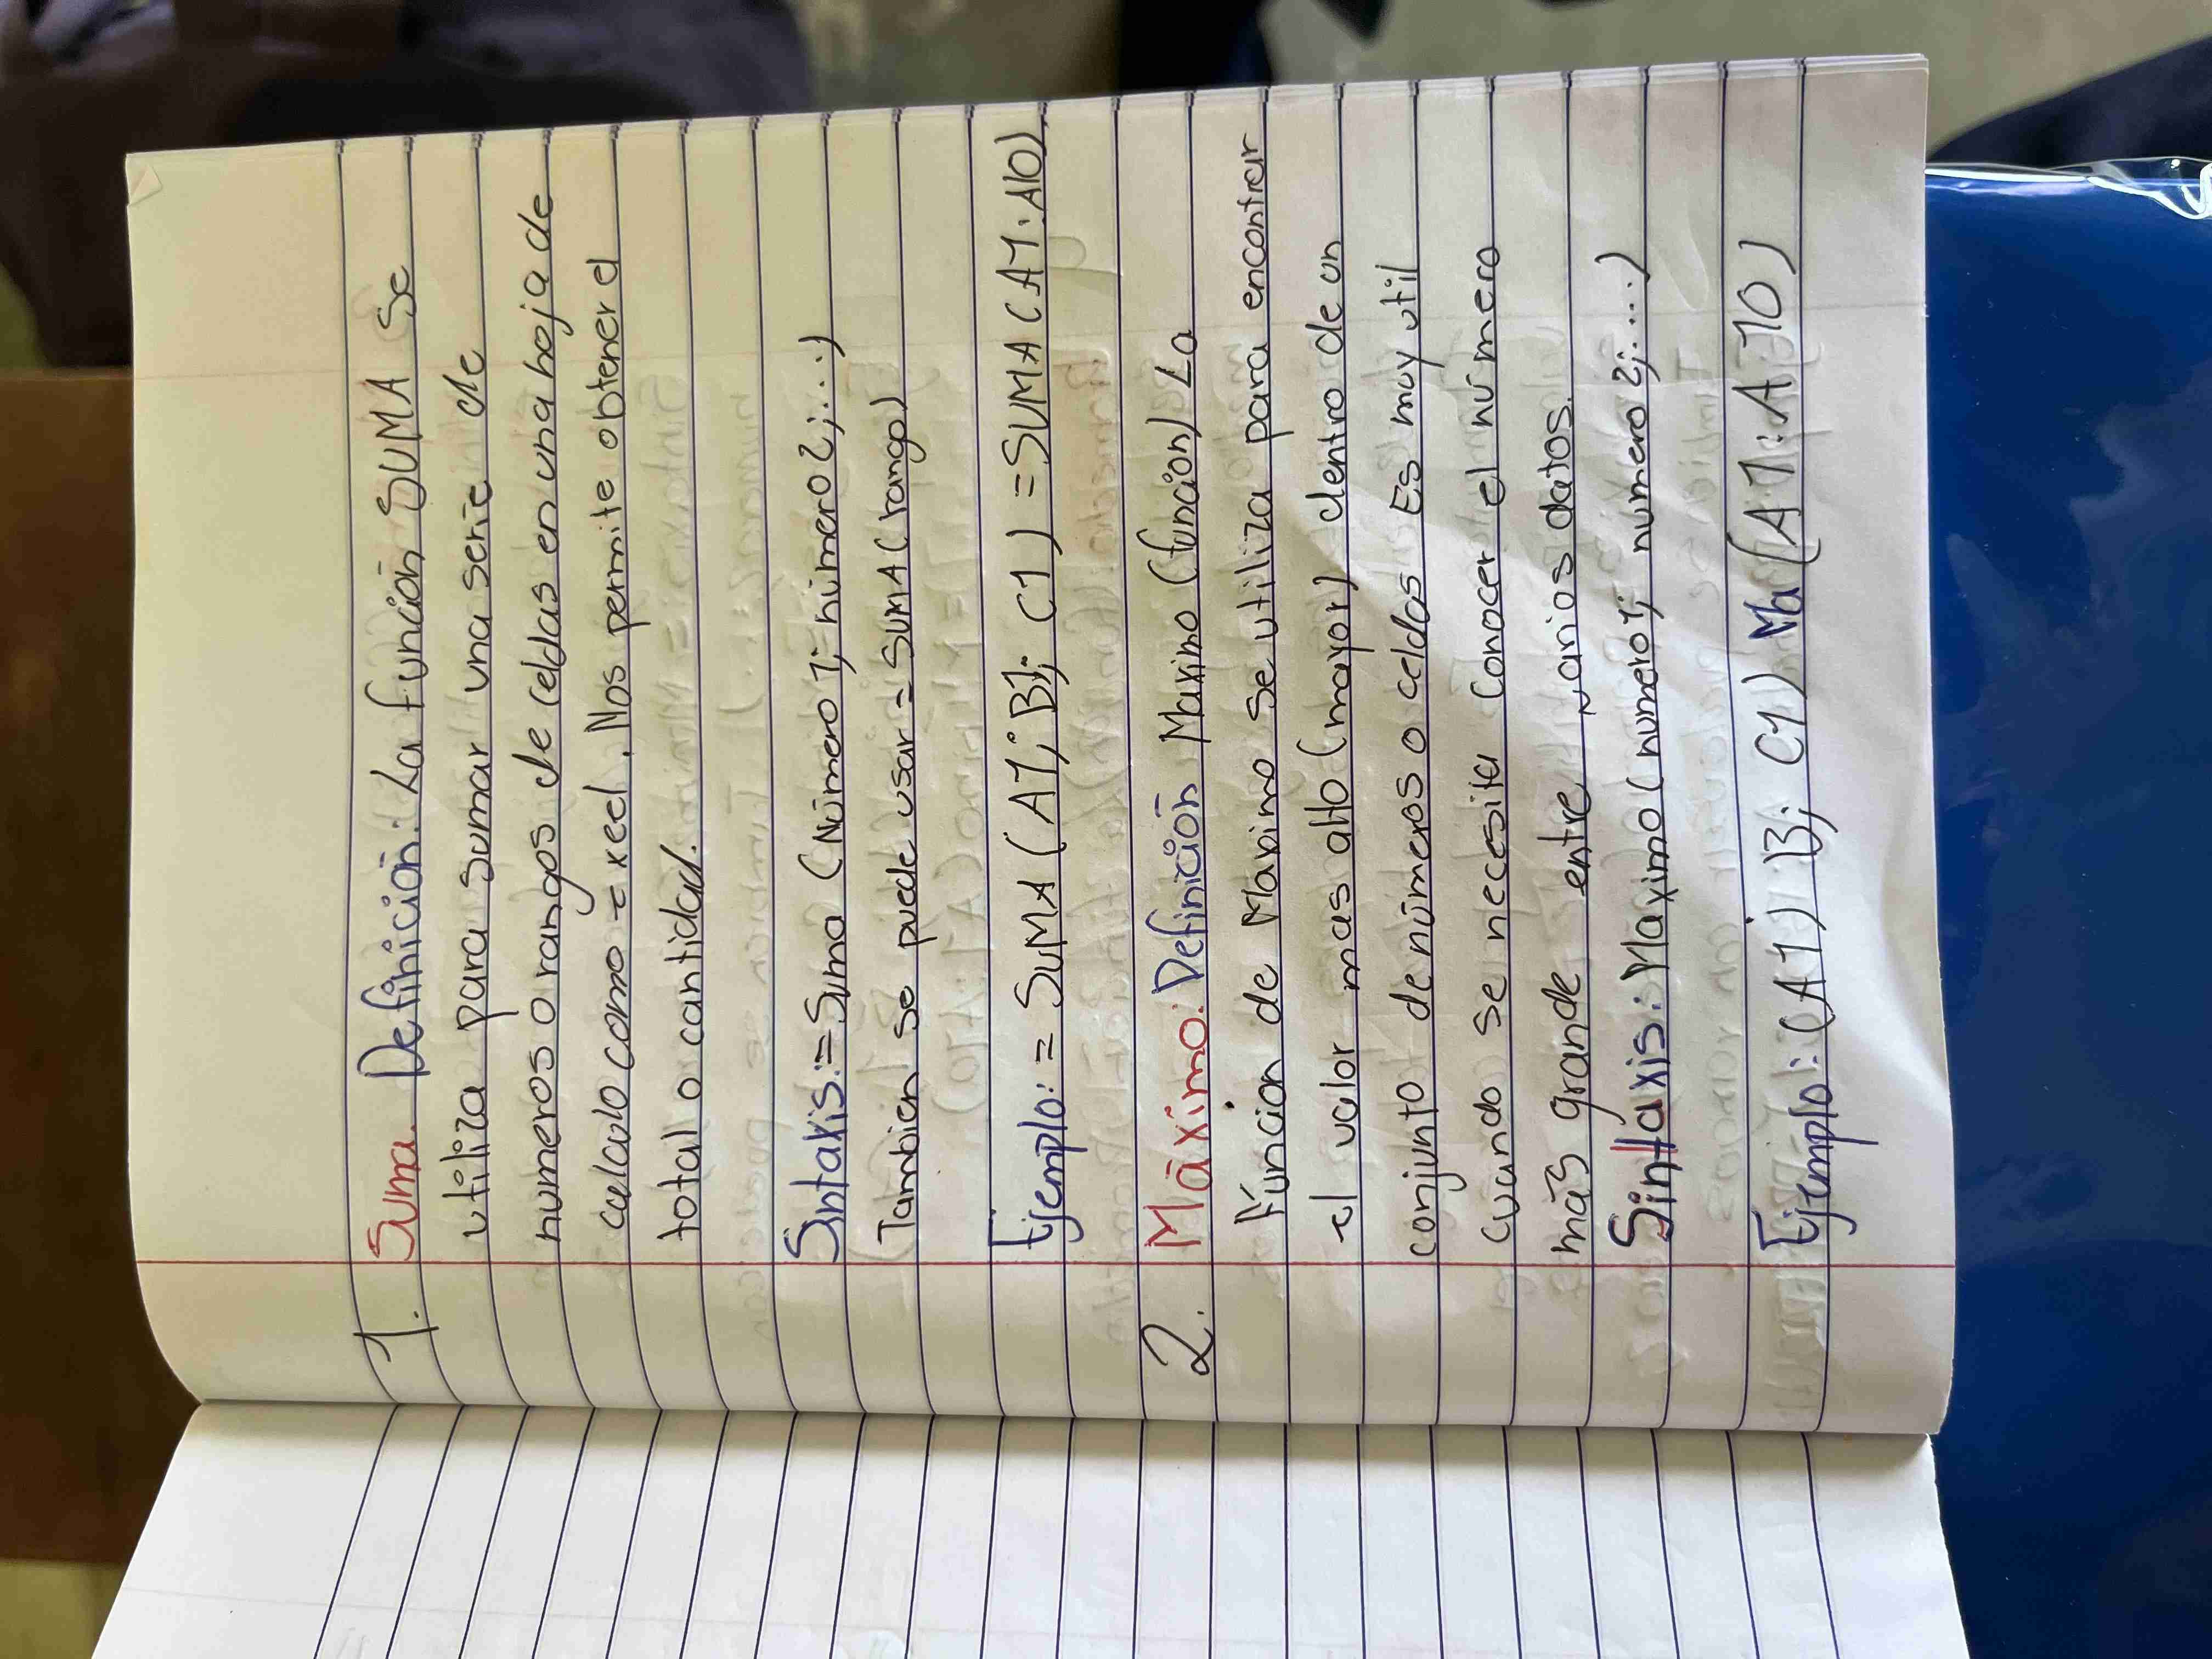 1. Suma. Definición: La función SUMA Se
utiliza para sumar una serie de
números o rangos de celdas en una hoja de
calculo como = xcel. Nos permite obtener el
total o cantidad.
Sintaxis:=Suma (Número 1; número 2;...)
Tambien se puede usar= SUMA (rango)
Ejemplo: = SUMA (A1; B1; C1) =SUMA (A1:A10)
2. Máximo. Definición Maximo (función) La
Función de Maximo Se utiliza para encontrar
el valor mas alto (mayor) dentro de un
conjunto de números o celdas Es muy util
cuando se necesita Conocer el número
más grande entre varios datos.
Sintaxis: Maximo (numero1; numero 2;...)
Ejemplo: (A1) B; C1) Ma (A1:A10)